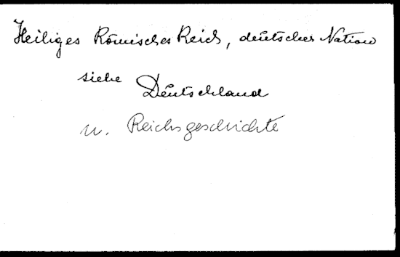 Heiliges Römisches Reich, deutscher Nation
siehe Deutschland
u. Reichsgeschichte